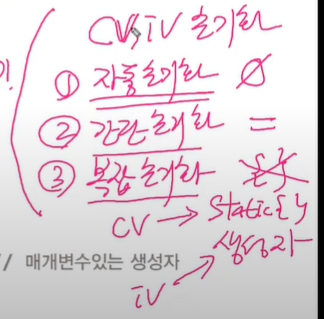 CV, iV 초기화
① 자동초기화 0
② 간단초기화 =
③ 복잡초기화 {}
CV → static { }
생성자
// 매개변수있는 생성자
iV